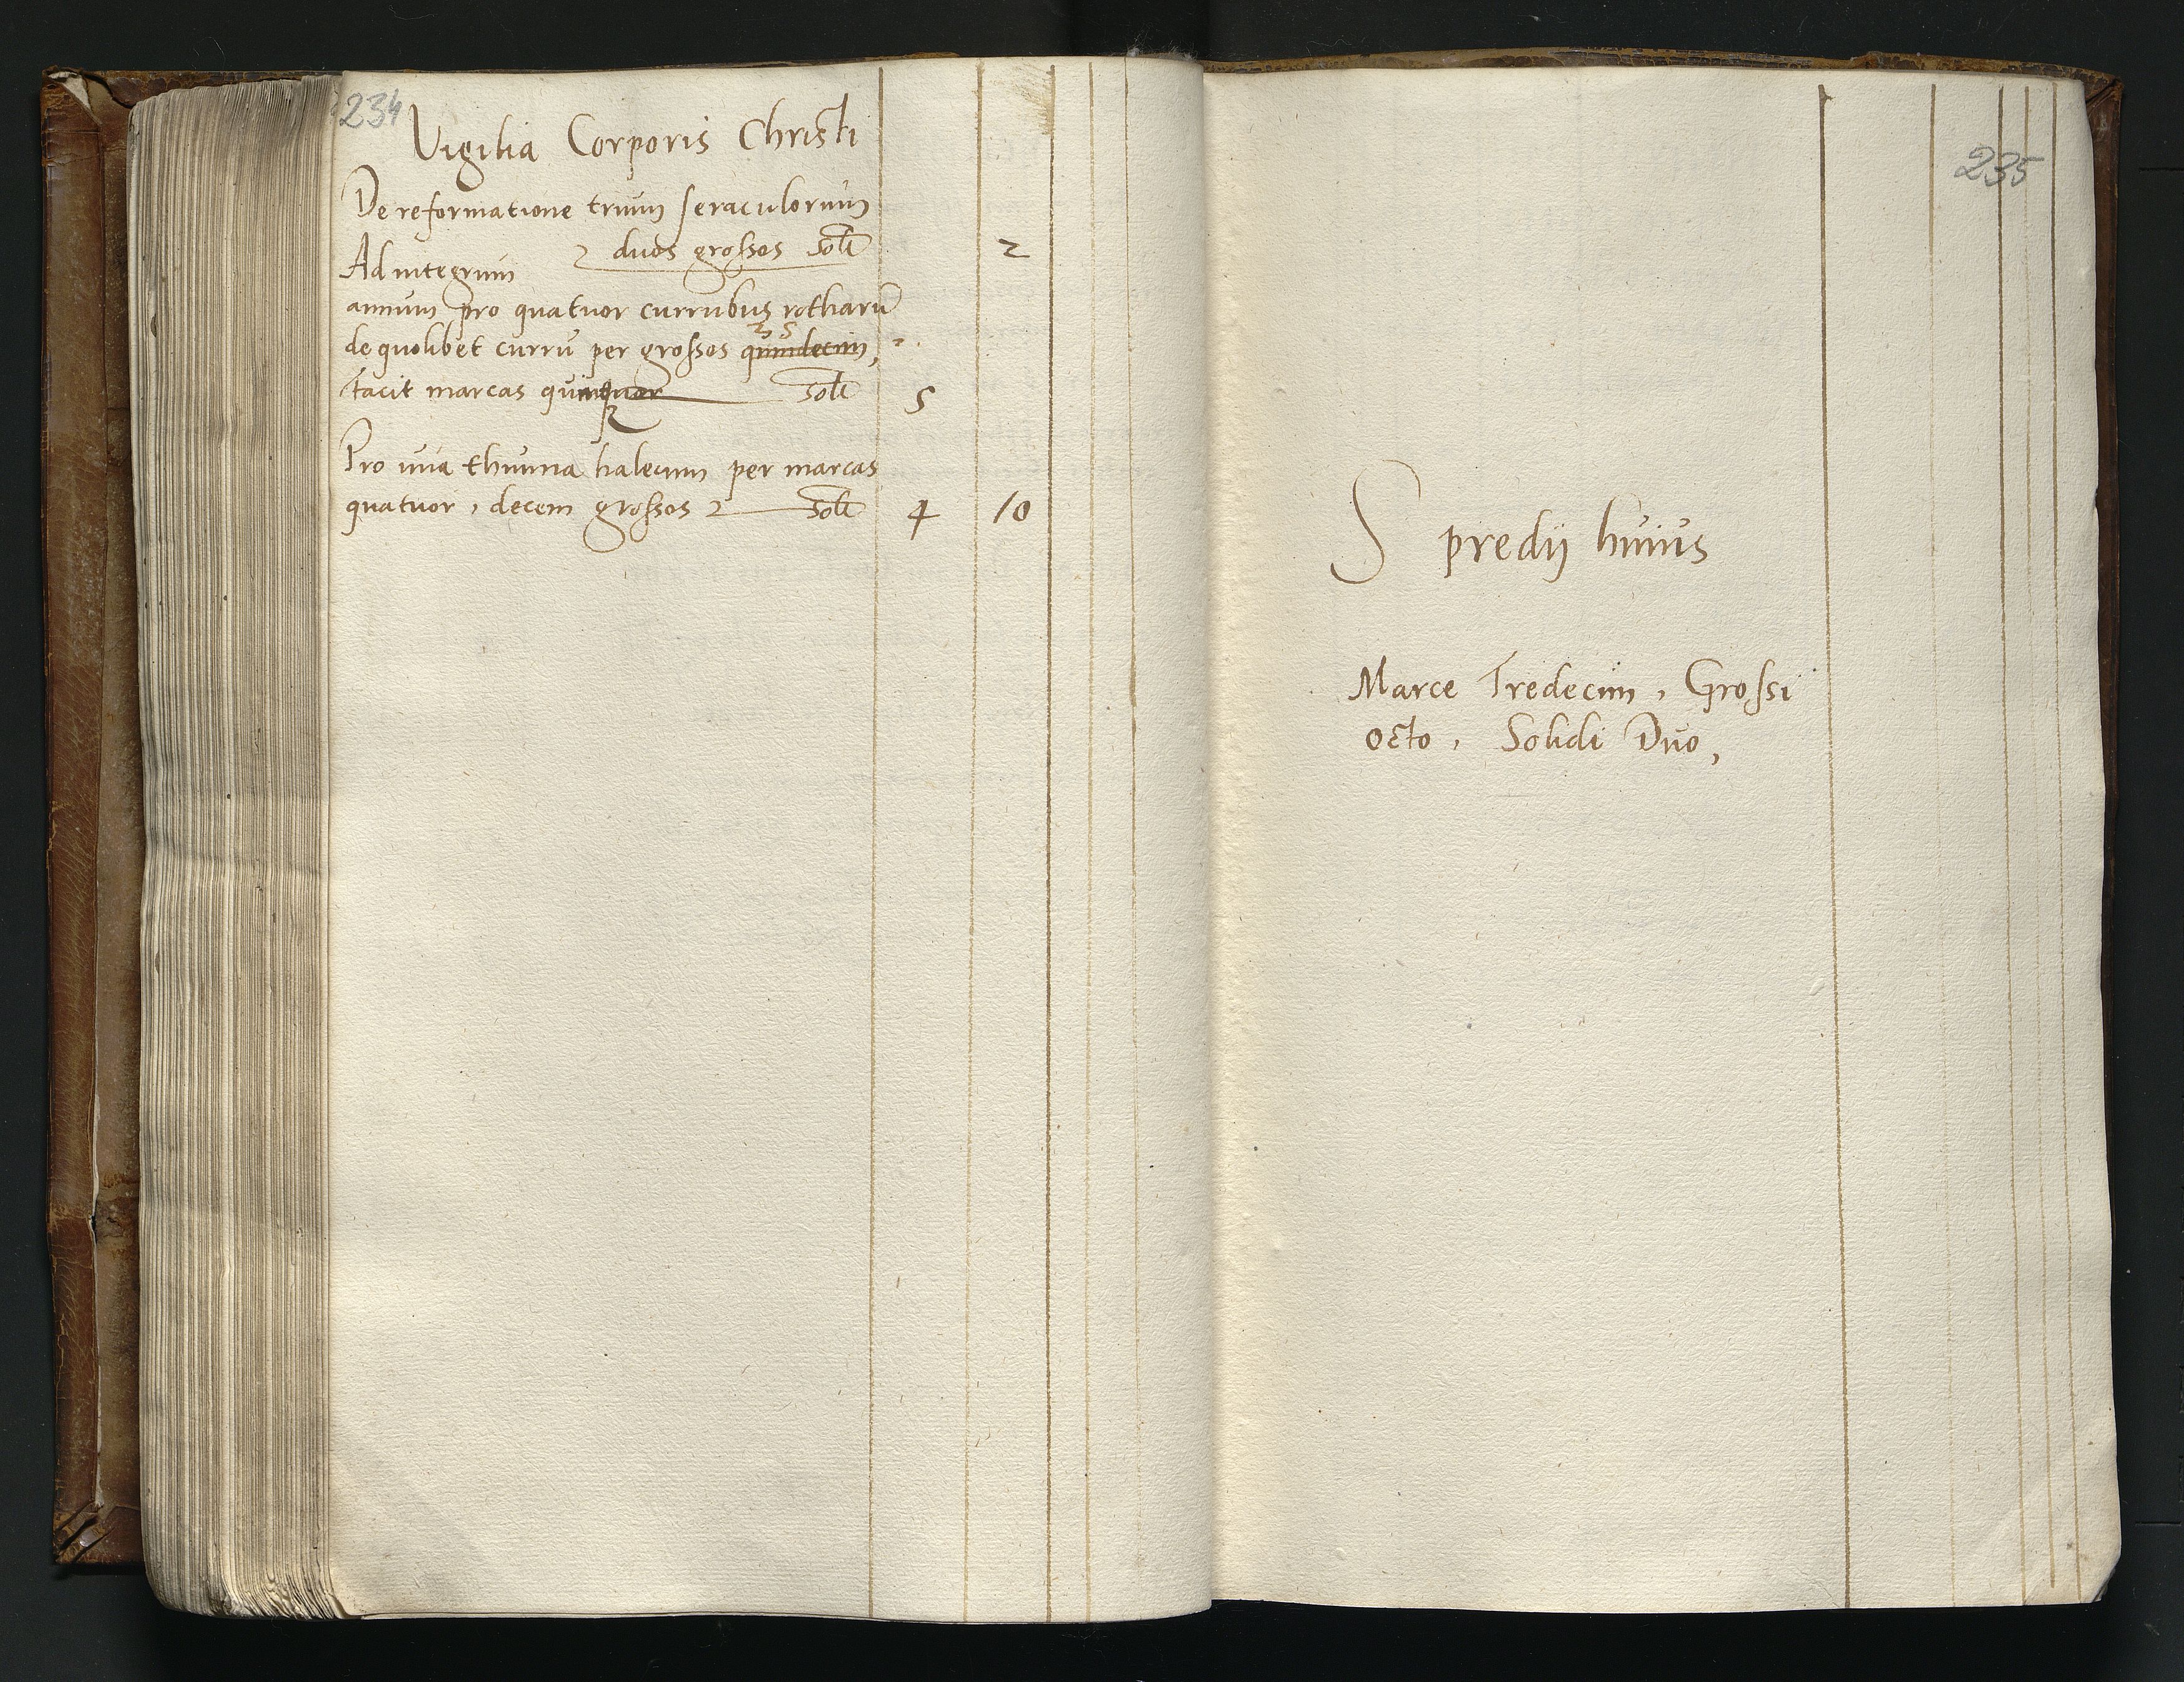 234
Vigilia Corporis Christi
De reformatione trium seraculorum
duos grossos solı 2
Ad integrum
annum pro quatuor currubus rotharū
25
de quolibet currū per grossos quindecim,
facit marcas quinq solı 5
Pro una thunna halecum per marcas
quatuor, decem grossos solı 4 10
235
S predij huius
Marce Tredecim, Grossi
octo, Solidi Duo,